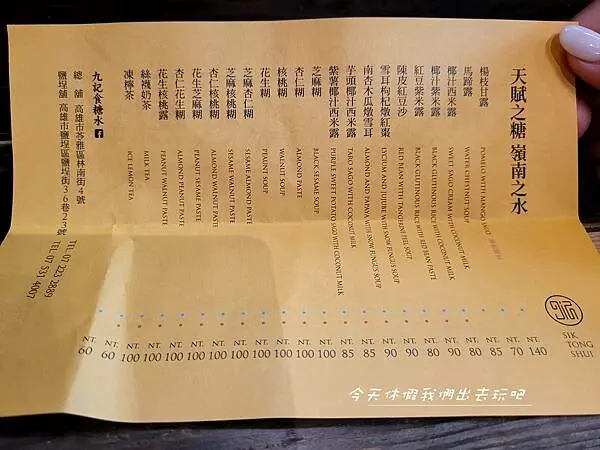 天賦之糖 嶺南之水
楊枝甘露 POMELO WITH MANGO SAGO NT. 140
馬蹄露 WATER CHESTNUT SOUP NT. 70
椰汁西米露 SWEET SAGO CREAM WITH COCONUT MILK NT. 85
椰汁紫米露 BLACK GLUTINOUS RICE WITH COCONUT MILK NT. 90
紅豆紫米露 BLACK GLUTINOUS RICE WITH RED BEAN PASTE NT. 90
陳皮紅豆沙 RED BEAN WITH TANGERINE PEEL SOUP NT. 80
雪耳枸杞燉紅棗 LYCIUM AND JUJUBE WITH SNOW FUNGUS SOUP NT. 90
南杏木瓜燉雪耳 ALMOND AND PAPAYA WITH SNOW FUNGUS SOUP NT. 90
芋頭椰汁西米露 TARO SAGO WITH COCONUT MILK NT. 85
紫薯椰汁西米露 PURPLE SWEET POTATO SAGO WITH COCONUT MILK NT. 85
芝麻糊 BLACK SESAME SOUP NT. 100
杏仁糊 ALMOND PASTE NT. 100
核桃糊 WALNUT SOUP NT. 100
花生糊 PEAUNT SOUP NT. 100
芝麻杏仁糊 SESAME ALMOND PASTE NT. 100
芝麻核桃糊 SESAME WALNUT PASTE NT. 100
杏仁核桃糊 ALMOND WALNUT PASTE NT. 100
花生芝麻糊 PEANUT SESAME PASTE NT. 100
杏仁花生糊 ALMOND PEANUT PASTE NT. 100
花生核桃露 PEANUT WALNUT PASTE NT. 100
絲襪奶茶 MILK TEA NT. 60
凍檸茶 ICE LEMON TEA NT. 60
九記食糖水
總舖 高雄市苓雅區林南街4號 TEL 07 223 2889
鹽埕舖 高雄市鹽埕區鹽埕街36巷23號 TEL 07 531 4007
SIK
TONG
SHUI
今天休假我們出去玩吧